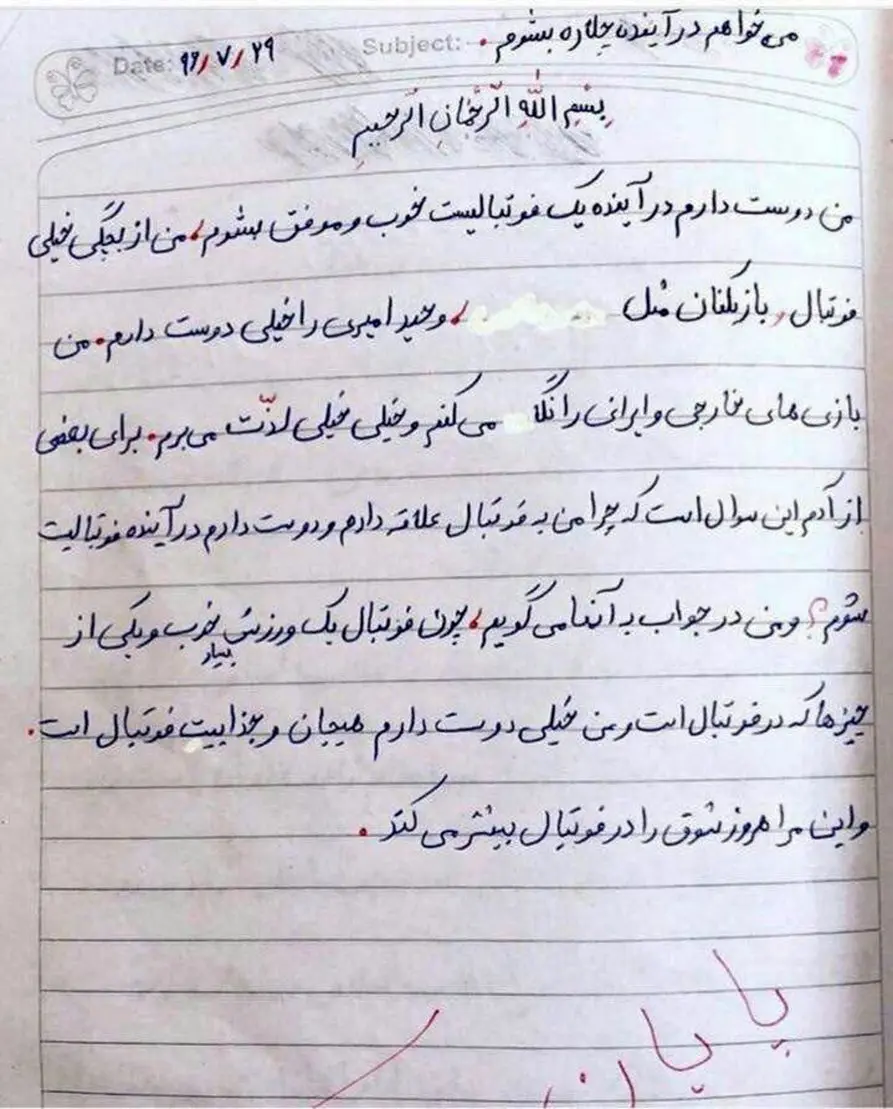 می‌خواهم در آینده چکاره بشوم.
Subject:
Date: ۹۶/۷/۲۹
بِسْمِ اللّٰهِ الرَّحْمٰانِ الرَّحیمِ
من دوست دارم در آینده یک فوتبالیست خوب و موفق بشوم، من از بچگی خیلی
فوتبال، بازیکنان مثل ، وحید امیری را خیلی دوست دارم. من
بازی های خارجی و ایرانی را نگا می کنم و خیلی خیلی لذّت می برم. برای بعضی
از آدم این سوال است که چرا من به فوتبال علاقه دارم و دوست دارم در آینده فوتبالیست
شوم؟ و من در جواب به آنها می گویم، چون فوتبال یک ورزش خوب و یکی از
بسیار
چیزها که در فوتبال است و من خیلی دوست دارم هیجان و جذابیت فوتبال است.
و این مرا هروز شوق را در فوتبال بیشتر می کند.
پایان